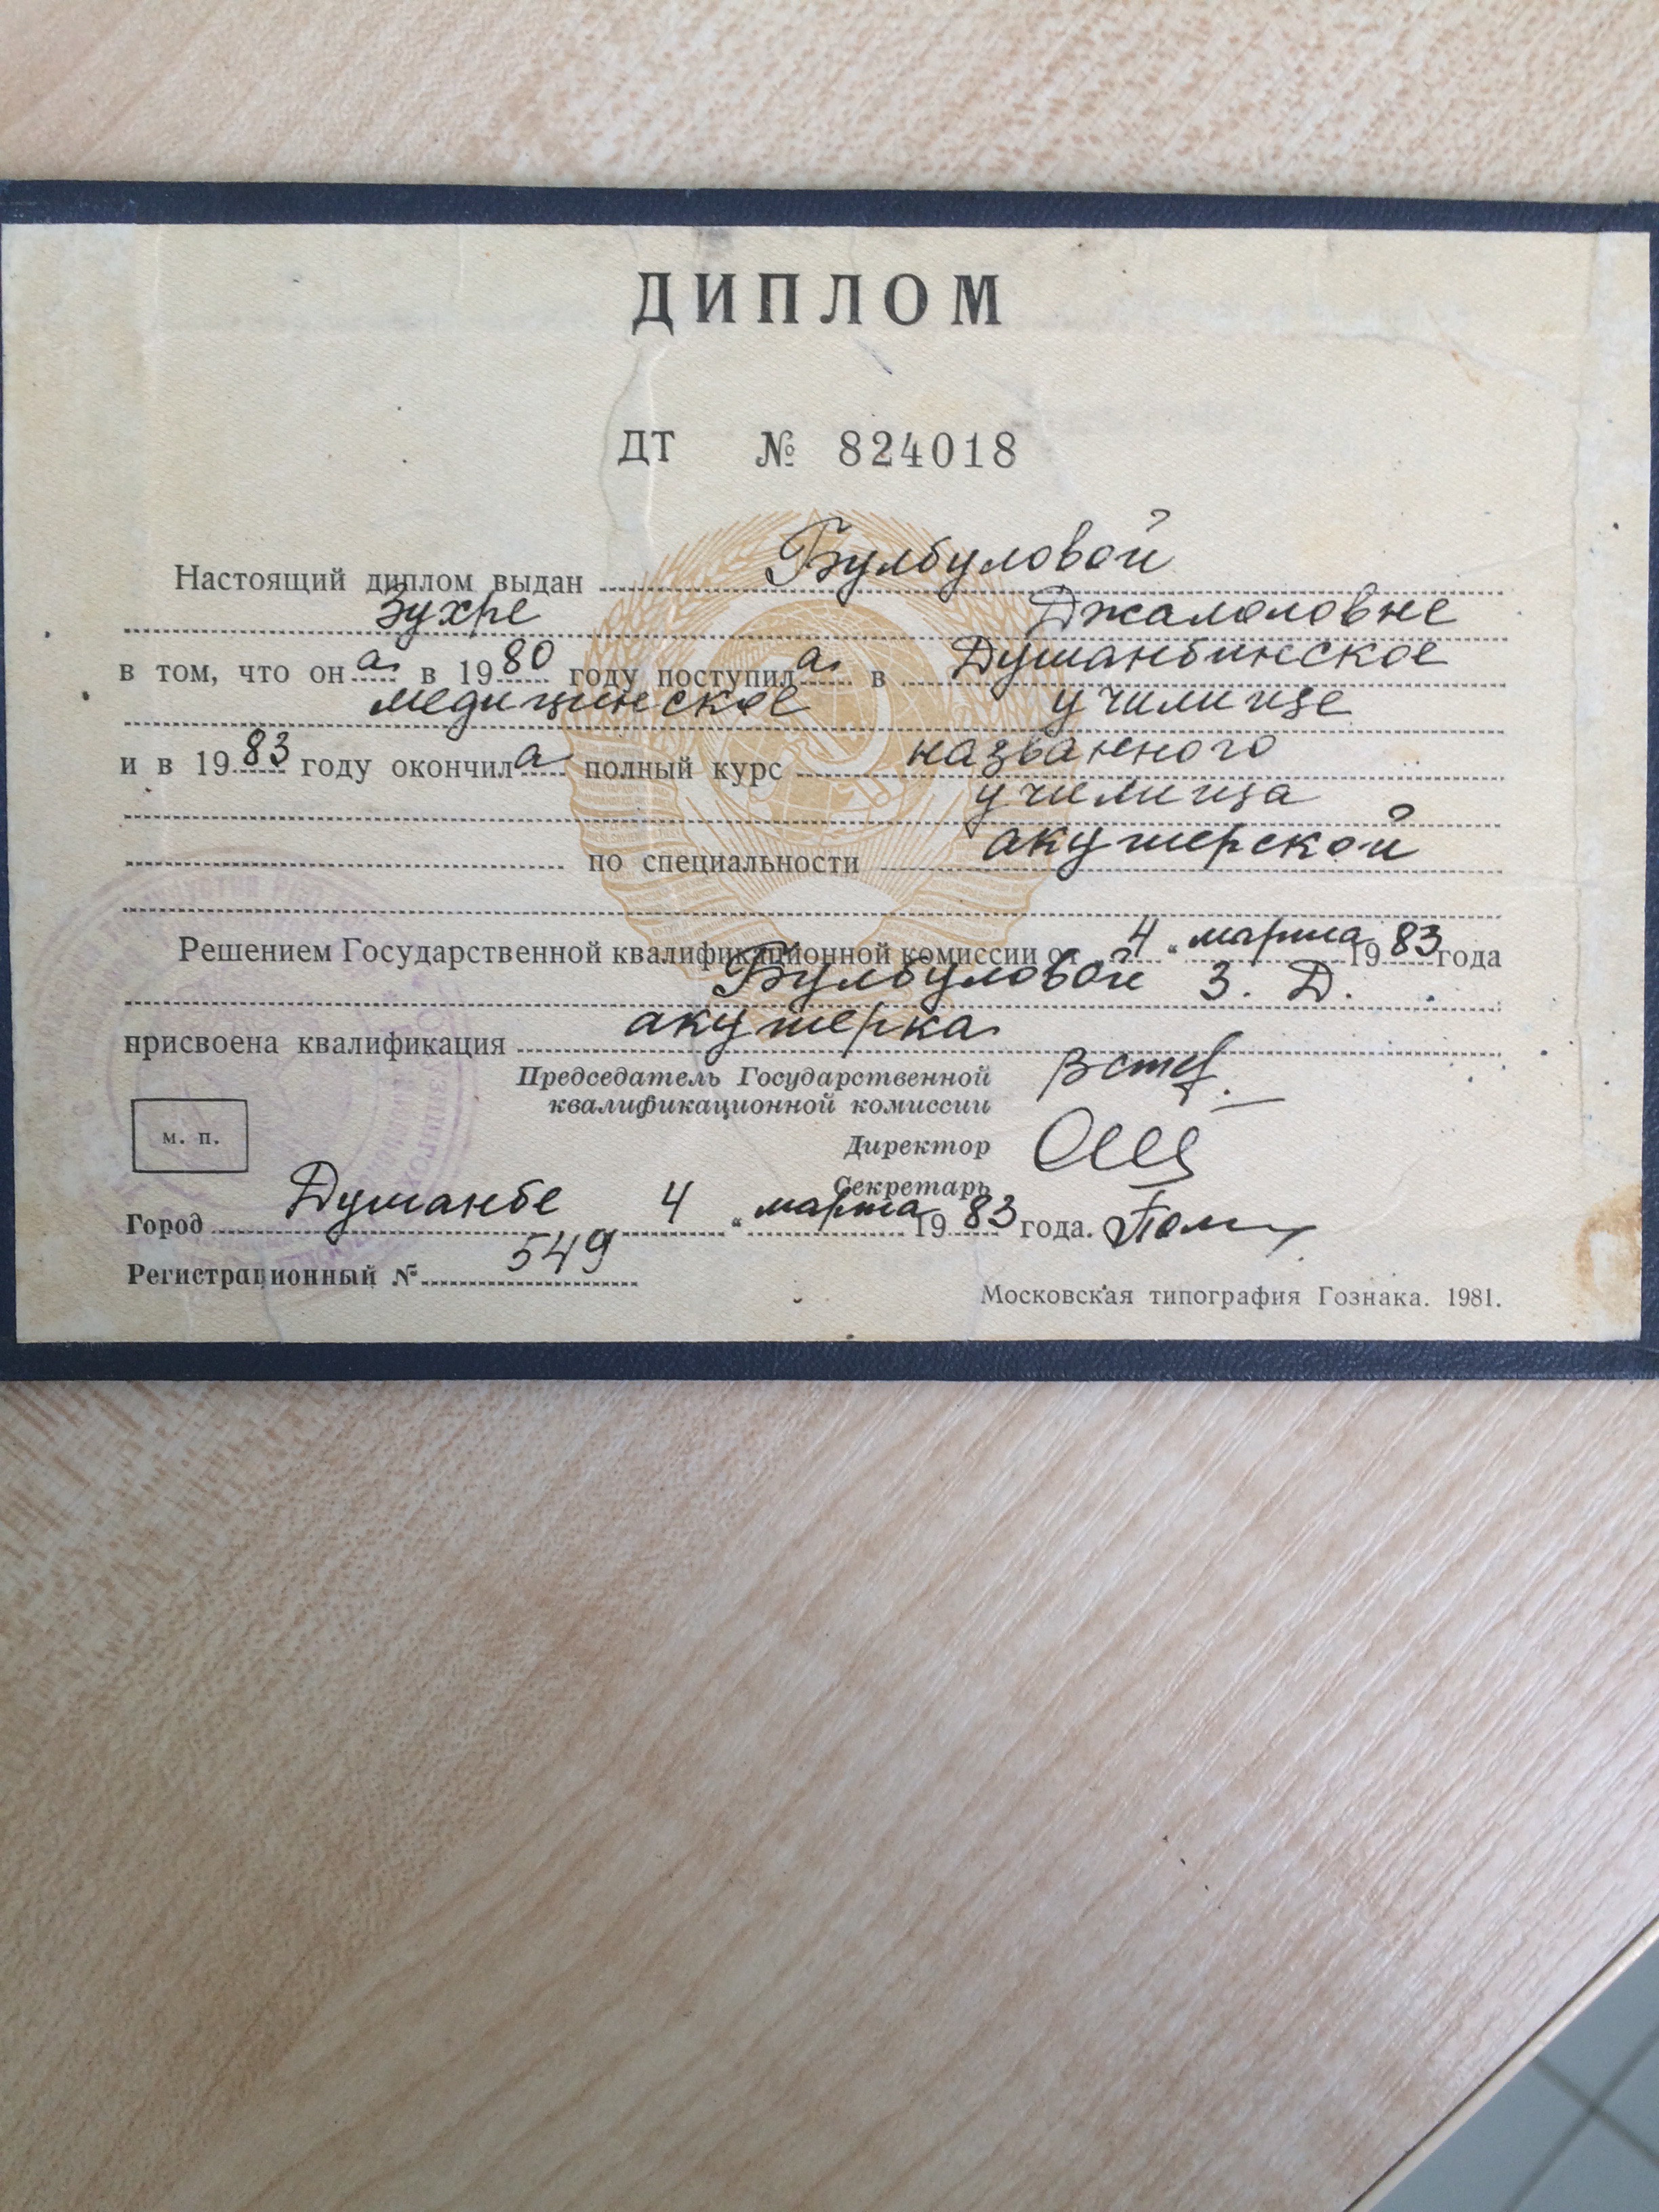 ДИПЛОМ
ДТ № 824018
Настоящий диплом выдан Булбуловой
Зухре Джалоловне
в том, что она в 1980 году поступила в Душанбинское
медицинское училище
и в 1983 году окончила полный курс названного
училища
по специальности акушерской
Решением Государственной квалификационной комиссии от 4 " марта 1983 года
Булбуловой З. Д.
присвоена квалификация акушерка
Председатель Государственной
квалификационной комиссии
м. п.
Директор
Секретарь
Город Душанбе 4 " марта 1983 года.
Регистрационный № 549
Московская типография Гознака. 1981.